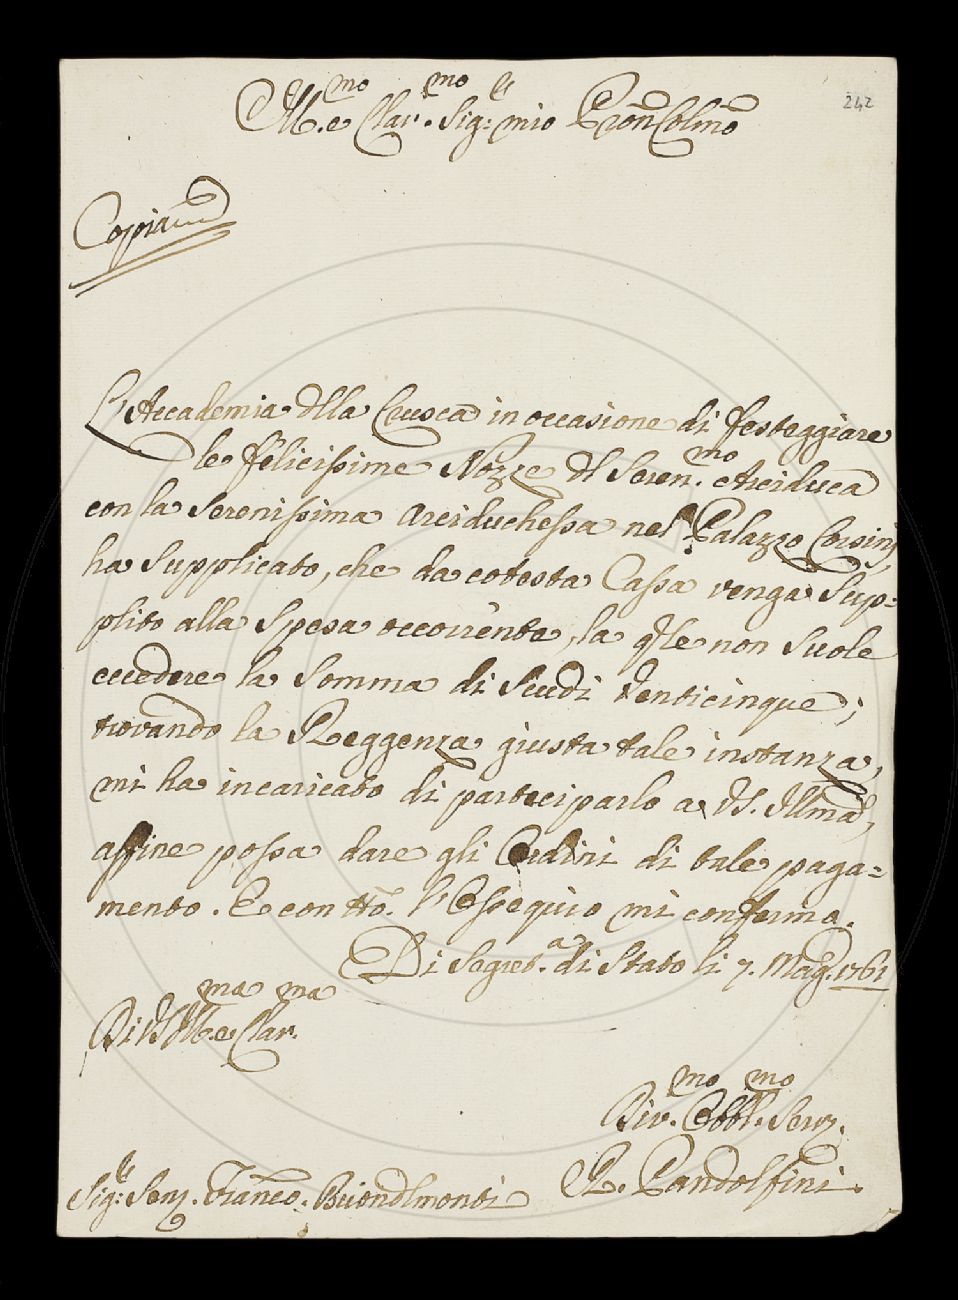 242
Ill.mo e Clar.mo Sig.re mio Pron Colmo
Copia
L'Accademia dlla Crusca in occasione di festeggiare
le felicissime Nozze dl Seren.mo Arciduca
con la Serenissima Arciduchessa nel Palazzo Corsini,
ha supplicato, che da cotesta Cassa venga sup=
plito alla spesa occorrente, la qle non suole
eccedere la somma di Scudi Venticinque;
trovando la Reggenza giusta tale instanza,
mi ha incaricato di parteciparlo a VS. Illma,
affine possa dare gli Ordini di tale paga=
mento. E con tto. l'Ossequio mi confermo.
Di Segret.a di Stato li 7. Mag. 1761
Di VS Ill.ma e Clar.ma
Div.mo Obbl.mo Serv.
R. Pandolfini.
Sig.re Sen. Franco. Buondlmonti